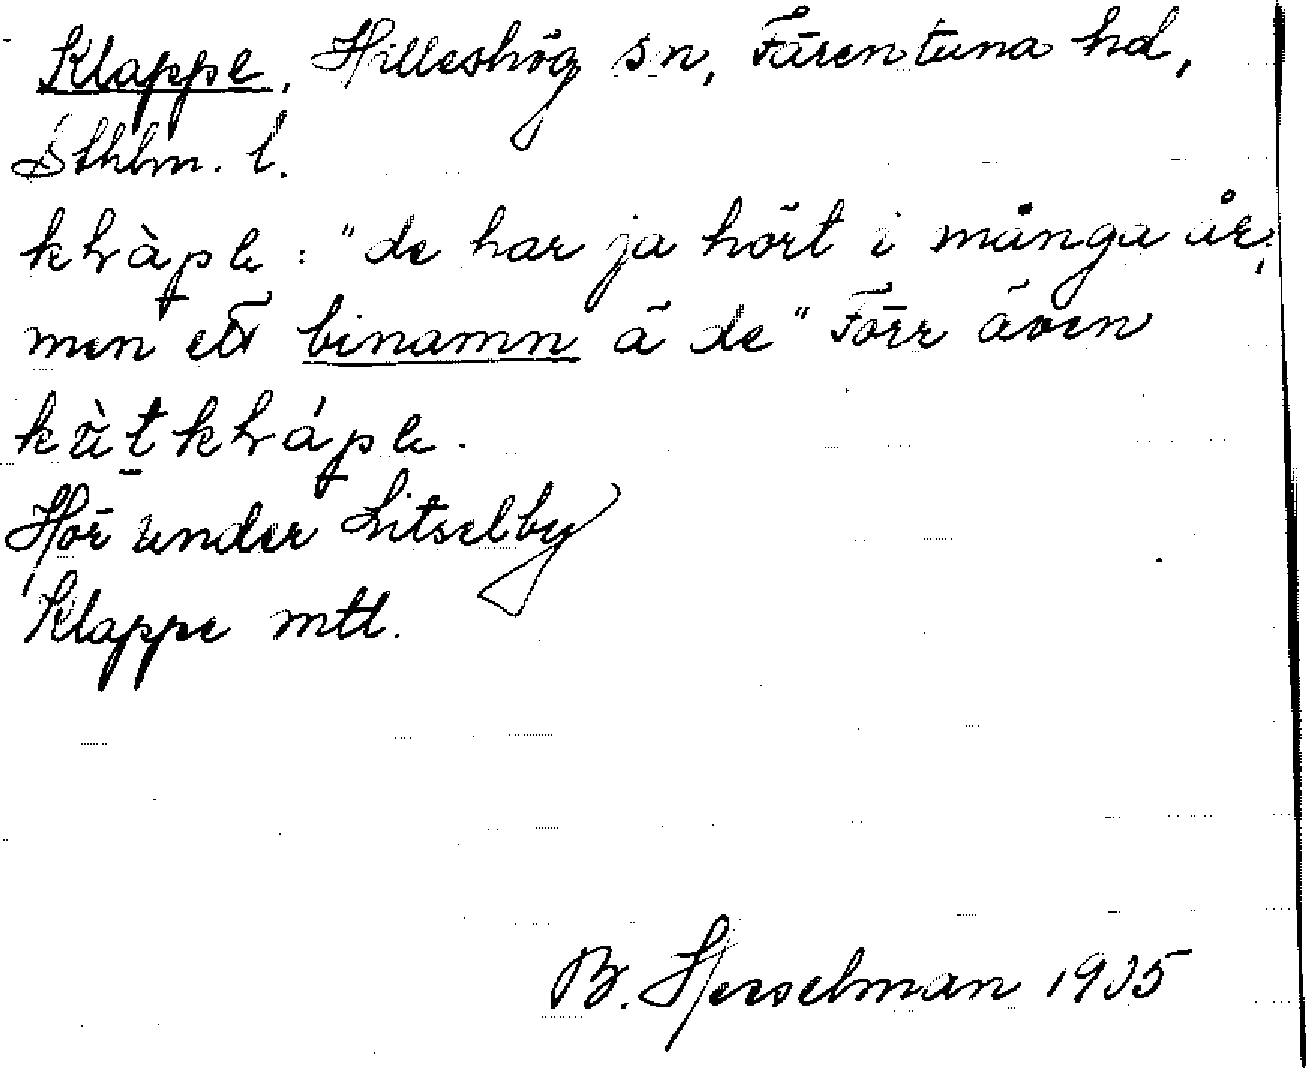 Klappe, Hilleshög sn, Färentuna hd,
Sthlm. l.
klràpe: "de har ja hört i många år,
men ett binamn ä de" Förr även
kùtklrápe.
Hör under Litselby
Klappe mtl.
B. Hesselman 1935